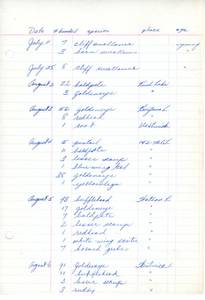 Date # banded species place age
July 11 7 cliff swallows
3 barn swallows
July 25 8 cliff swallows "
August 2 22 baldpate
3 goldeneye "
August 3 52 goldeneye
8 redhead "
1 coot
August 4 5 pintail
baldpate "
3 lesser scaup "
blue-wing teal "
28 goldeneye "
1 yellowlegs "
August 5 98 bufflehead
17 goldeneye "
7 baldpate "
2 lesser scaup "
1 redhead "
1 white wing scoter "
7 horned grebe "
August 6 91 goldeneye
11 bufflehead "
3 lesser scaup "
3 ruddy "